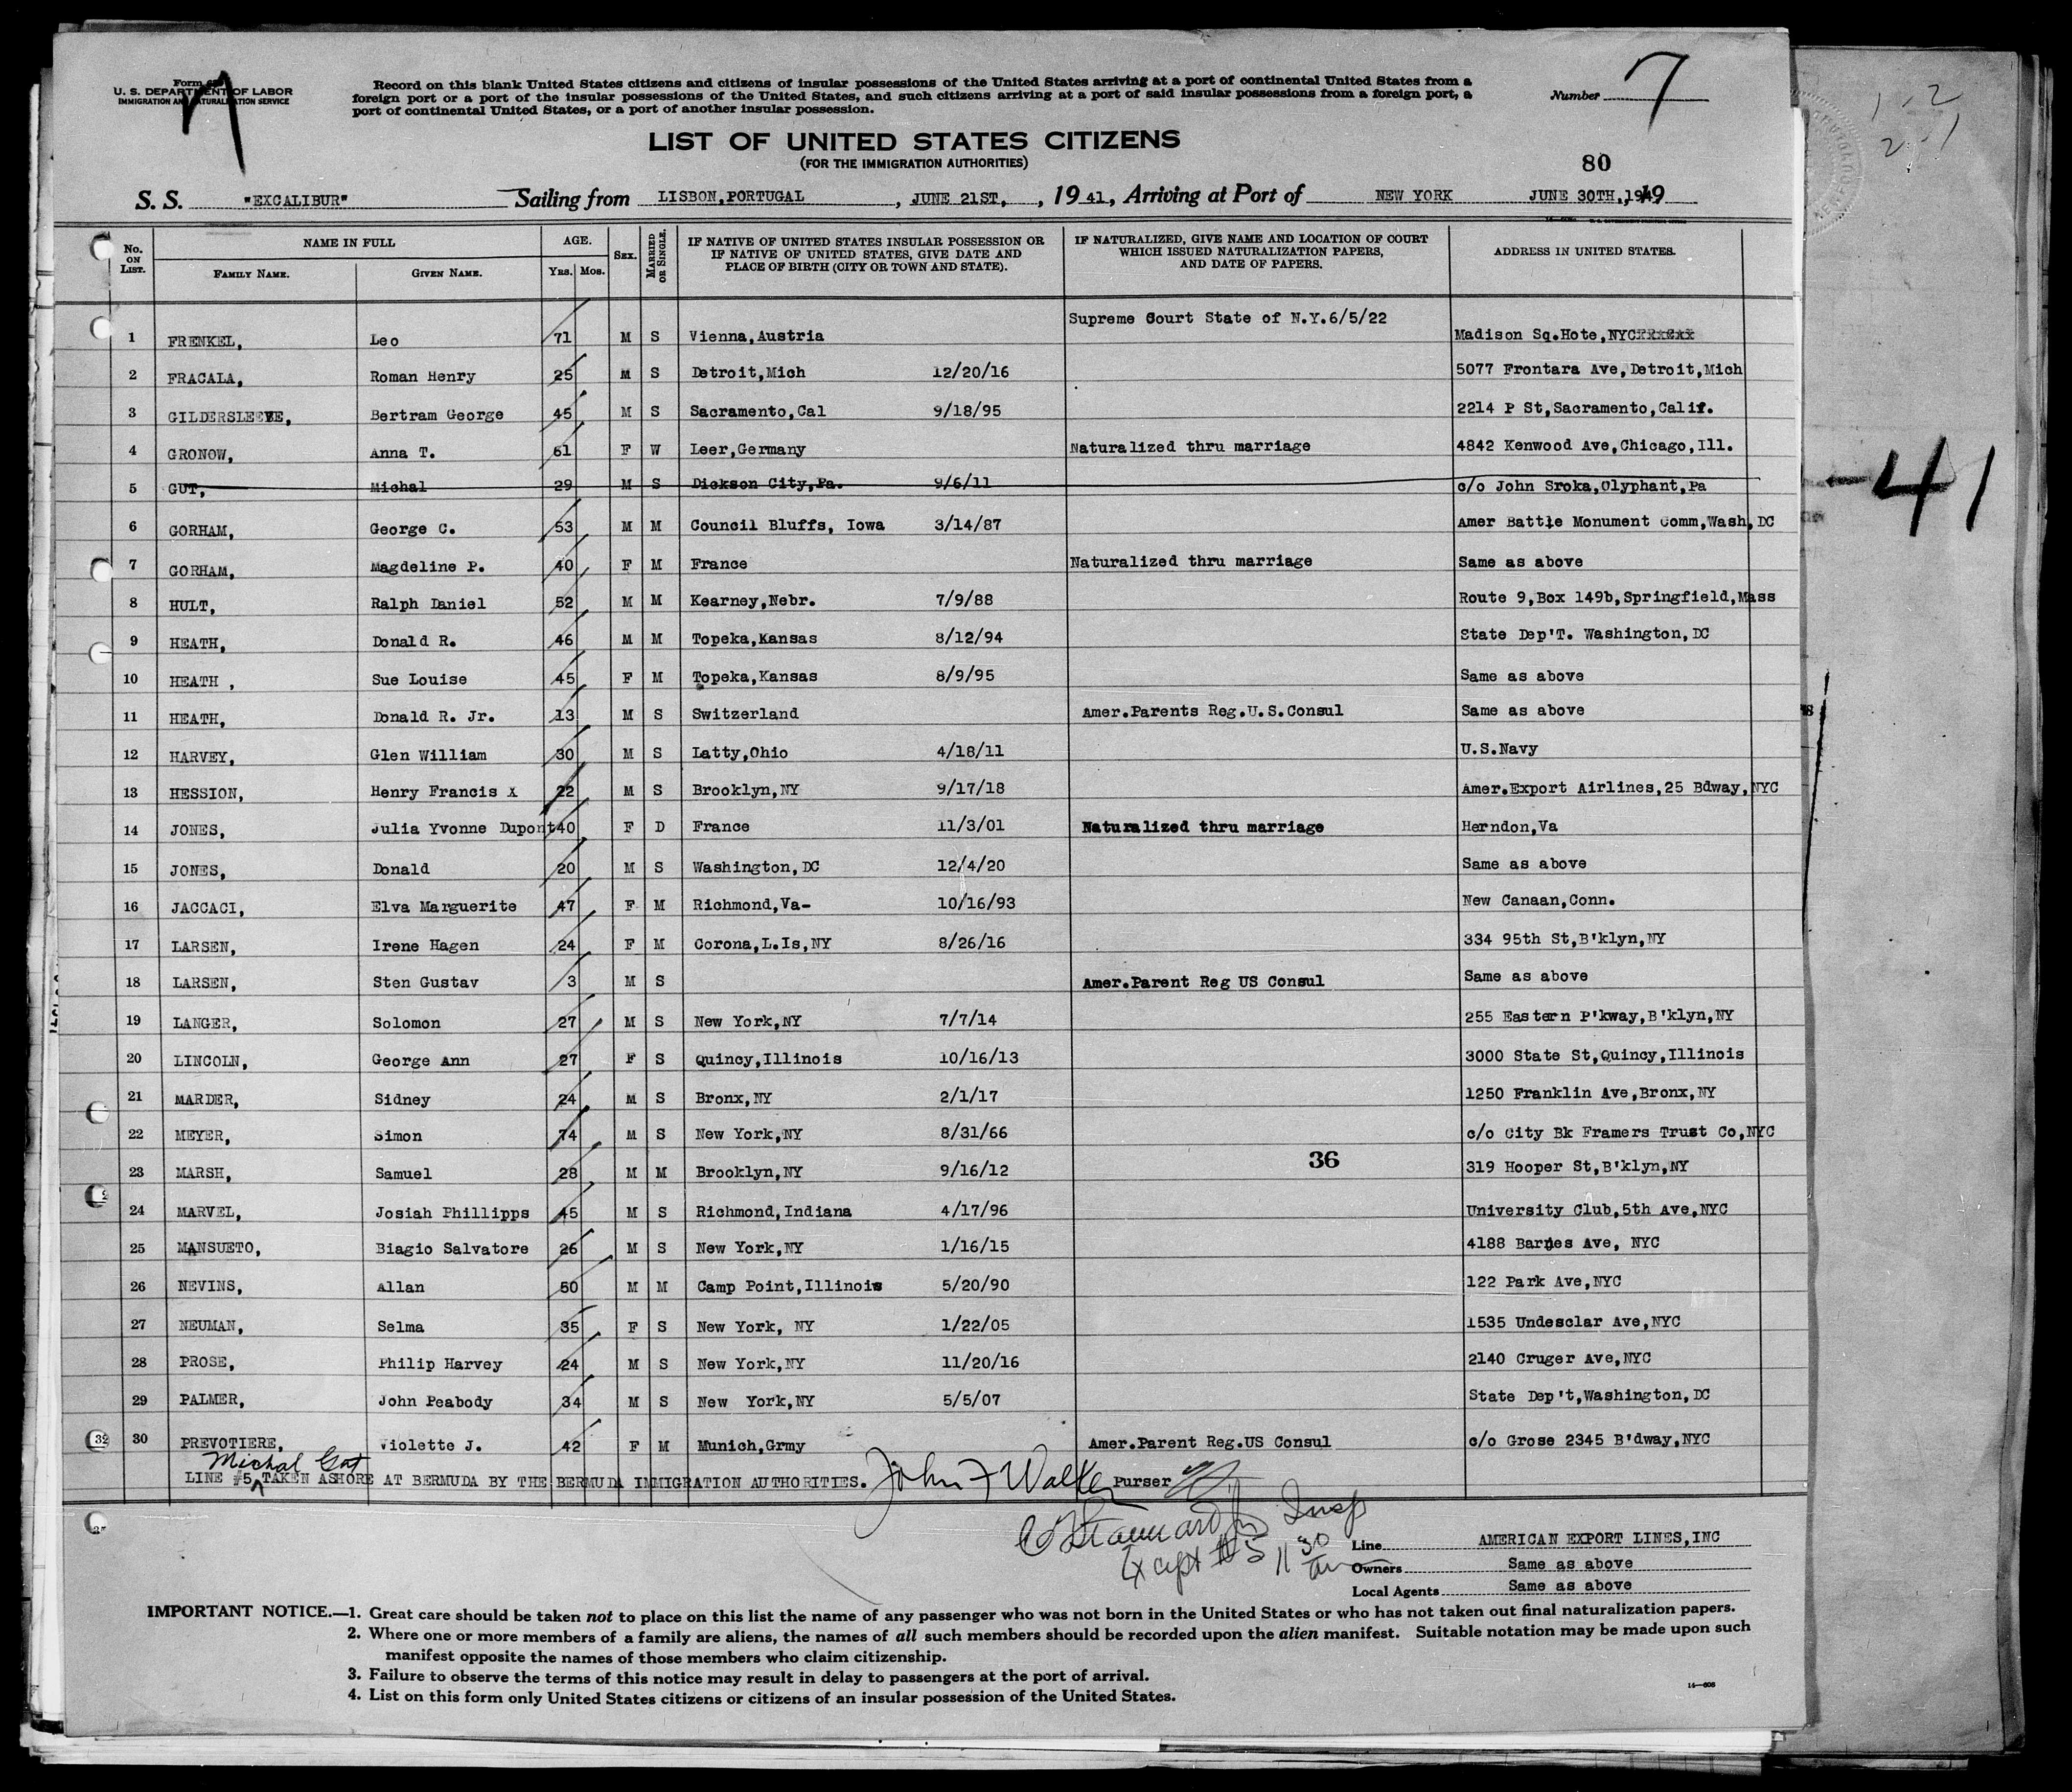 Form 630
U. S. DEPARTMENT OF LABOR
IMMIGRATION AND NATURALIZATION SERVICE
Record on this blank United States citizens and citizens of insular possessions of the United States arriving at a port of continental United States from a
foreign port or a port of the insular possessions of the United States, and such citizens arriving at a port of said insular possessions from a foreign port, a
port of continental United States, or a port of another insular possession.
Number 7
LIST OF UNITED STATES CITIZENS
(FOR THE IMMIGRATION AUTHORITIES)
80
S. S. "EXCALIBUR" Sailing from LISBON,PORTUGAL , JUNE 21ST, , 19 41, Arriving at Port of NEW YORK JUNE 30TH.,1941
No. ON LIST. NAME IN FULL FAMILY NAME. GIVEN NAME. AGE. YRS. MOS. SEX. MARRIED OR SINGLE. IF NATIVE OF UNITED STATES INSULAR POSSESSION OR IF NATIVE OF UNITED STATES, GIVE DATE AND PLACE OF BIRTH (CITY OR TOWN AND STATE). IF NATURALIZED, GIVE NAME AND LOCATION OF COURT WHICH ISSUED NATURALIZATION PAPERS, AND DATE OF PAPERS. ADDRESS IN UNITED STATES.
1 FRENKEL, Leo 71 M S Vienna,Austria Supreme Court State of N.Y.6/5/22 Madison Sq.Hote,NYC
2 FRACALA, Roman Henry 25 M S Detroit,Mich 12/20/16 5077 Frontara Ave,Detroit,Mich
3 GILDERSLEEVE, Bertram George 45 M S Sacramento,Cal 9/18/95 2214 P St,Sacramento,Calif.
4 GRONOW, Anna T. 61 F W Leer,Germany Naturalized thru marriage 4842 Kenwood Ave,Chicago,Ill.
5 GUT, Michal 29 M S Dickson City,Pa. 9/6/11 c/o John Sroka,Olyphant,Pa
6 GORHAM, George C. 53 M M Council Bluffs, Iowa 3/14/87 Amer Battle Monument Comm,Wash,DC
7 GORHAM, Magdeline P. 40 F M France Naturalized thru marriage Same as above
8 HULT, Ralph Daniel 52 M M Kearney,Nebr. 7/9/88 Route 9,Box 149b,Springfield,Mass
9 HEATH, Donald R. 46 M M Topeka,Kansas 8/12/94 State Dep'T. Washington,DC
10 HEATH , Sue Louise 45 F M Topeka,Kansas 8/9/95 Same as above
11 HEATH, Donald R. Jr. 13 M S Switzerland Amer.Parents Reg.U.S.Consul Same as above
12 HARVEY, Glen William 30 M S Latty,Ohio 4/18/11 U.S.Navy
13 HESSION, Henry Francis X 22 M S Brooklyn,NY 9/17/18 Amer.Export Airlines,25 Bdway,NYC
14 JONES, Julia Yvonne Dupont 40 F D France 11/3/01 Naturalized thru marriage Herndon,Va
15 JONES, Donald 20 M S Washington,DC 12/4/20 Same as above
16 JACCACI, Elva Marguerite 47 F M Richmond,Va- 10/16/93 New Canaan,Conn.
17 LARSEN, Irene Hagen 24 F M Corona,L.Is,NY 8/26/16 334 95th St,B'klyn,NY
18 LARSEN, Sten Gustav 3 M S Amer.Parent Reg US Consul Same as above
19 LANGER, Solomon 27 M S New York,NY 7/7/14 255 Eastern P'kway,B'klyn,NY
20 LINCOLN, George Ann 27 F S Quincy,Illinois 10/16/13 3000 State St,Quincy,Illinois
21 MARDER, Sidney 24 M S Bronx,NY 2/1/17 1250 Franklin Ave,Bronx,NY
22 MEYER, Simon 74 M S New York,NY 8/31/66 c/o City Bk Framers Trust Co,NYC
23 MARSH, Samuel 28 M M Brooklyn,NY 9/16/12 36 319 Hooper St,B'klyn,NY
24 MARVEL, Josiah Phillipps 45 M S Richmond,Indiana 4/17/96 University Club,5th Ave,NYC
25 MANSUETO, Biagio Salvatore 26 M S New York,NY 1/16/15 4188 Barnes Ave, NYC
26 NEVINS, Allan 50 M M Camp Point,Illinois 5/20/90 122 Park Ave,NYC
27 NEUMAN, Selma 35 F S New York, NY 1/22/05 1535 Undesclar Ave,NYC
28 PROSE, Philip Harvey 24 M S New York,NY 11/20/16 2140 Cruger Ave,NYC
29 PALMER, John Peabody 34 M S New York,NY 5/5/07 State Dep't,Washington,DC
30 PREVOTIERE, Violette J. 42 F M Munich,Grmy Amer.Parent Reg.US Consul c/o Grose 2345 B'dway,NYC
Michal Gut
LINE #5 TAKEN ASHORE AT BERMUDA BY THE BERMUDA IMMIGRATION AUTHORITIES. John F Walker Purser
Insp
Except #5 11 30 am
Line AMERICAN EXPORT LINES,INC
Owners Same as above
Local Agents Same as above
IMPORTANT NOTICE.—1. Great care should be taken not to place on this list the name of any passenger who was not born in the United States or who has not taken out final naturalization papers.
2. Where one or more members of a family are aliens, the names of all such members should be recorded upon the alien manifest. Suitable notation may be made upon such
manifest opposite the names of those members who claim citizenship.
3. Failure to observe the terms of this notice may result in delay to passengers at the port of arrival.
4. List on this form only United States citizens or citizens of an insular possession of the United States.
14—608
1-2
2-1
-41